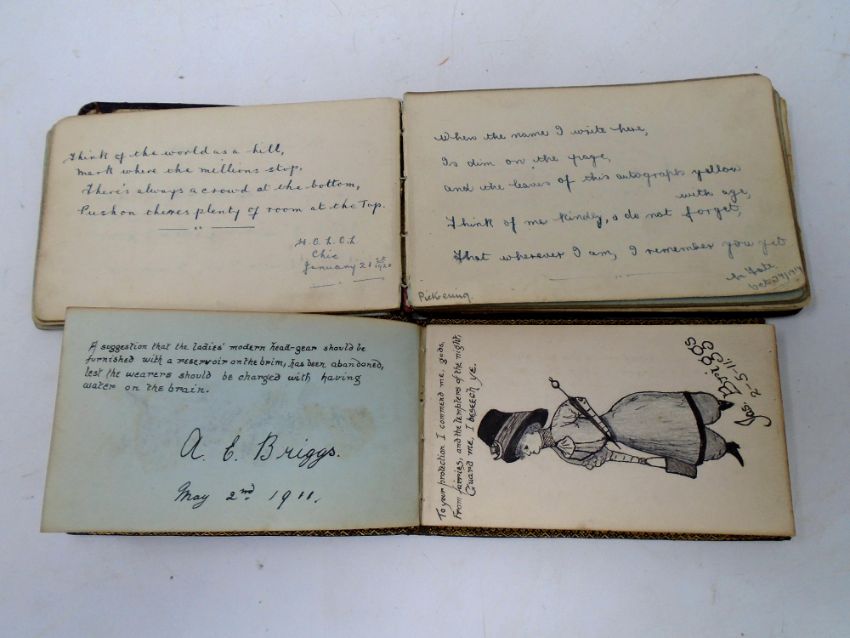 Think of the world as a hill,
Mark where the millions stop,
There's always a crowd at the bottom,
Push on theres plenty of room at the Top.
Chic
January 21st 1920
When the name I write here,
Is dim on the page,
and the leaves of this autograph yellow
with age,
Think of me kindly, & do not forget,
That wherever I am, I remember you yet
Pickering.
A suggestion that the ladies' modern head-gear should be
furnished with a reservoir on the brim, has been abandoned,
lest the wearers should be charged with having
water on the brain.
A. E. Briggs.
May 2nd 1911.
To your protection I commend me, gods,
From fairies, and the tempters of the night,
Guard me, I beseech ye.
Jas. Briggs
2-5-11.